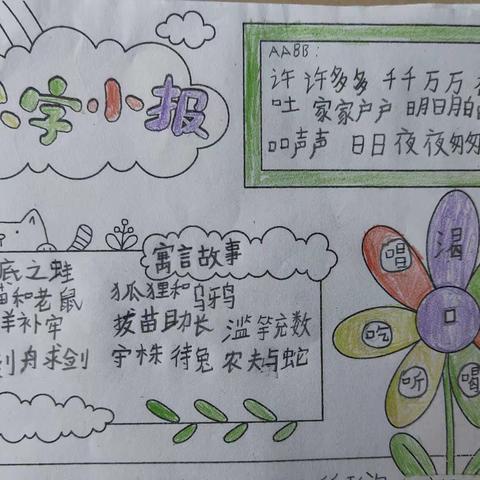 字小报
AABB:
许许多多 千千万万
吐 家家户户 明明白
声声 日日夜夜匆匆
底之蛙
猫和老鼠
羊补牢
舟求剑
寓言故事
狐狸和乌鸦
拔苗助长 滥竽充数
守株待兔 农夫与蛇
唱
渴
口
吃
听
喝